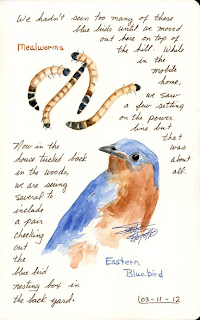 We hadn't seen too many of these
blue birds until we moved
out here on top of
the hill. While
in the
mobile
home,
we saw
a few setting
on the power
line but
that
was
about
all.
Mealworms
Now in the
house tucked back
in the woods,
we are seeing
several to
include
a pair
checking
out
the
blue bird
nesting box in
the back yard.
Eastern
Bluebird
03-11-12